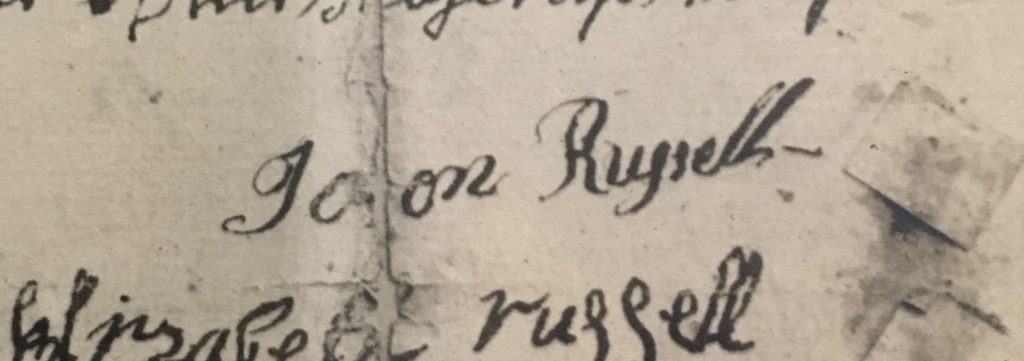 Jason Russell
Elizabeth russell